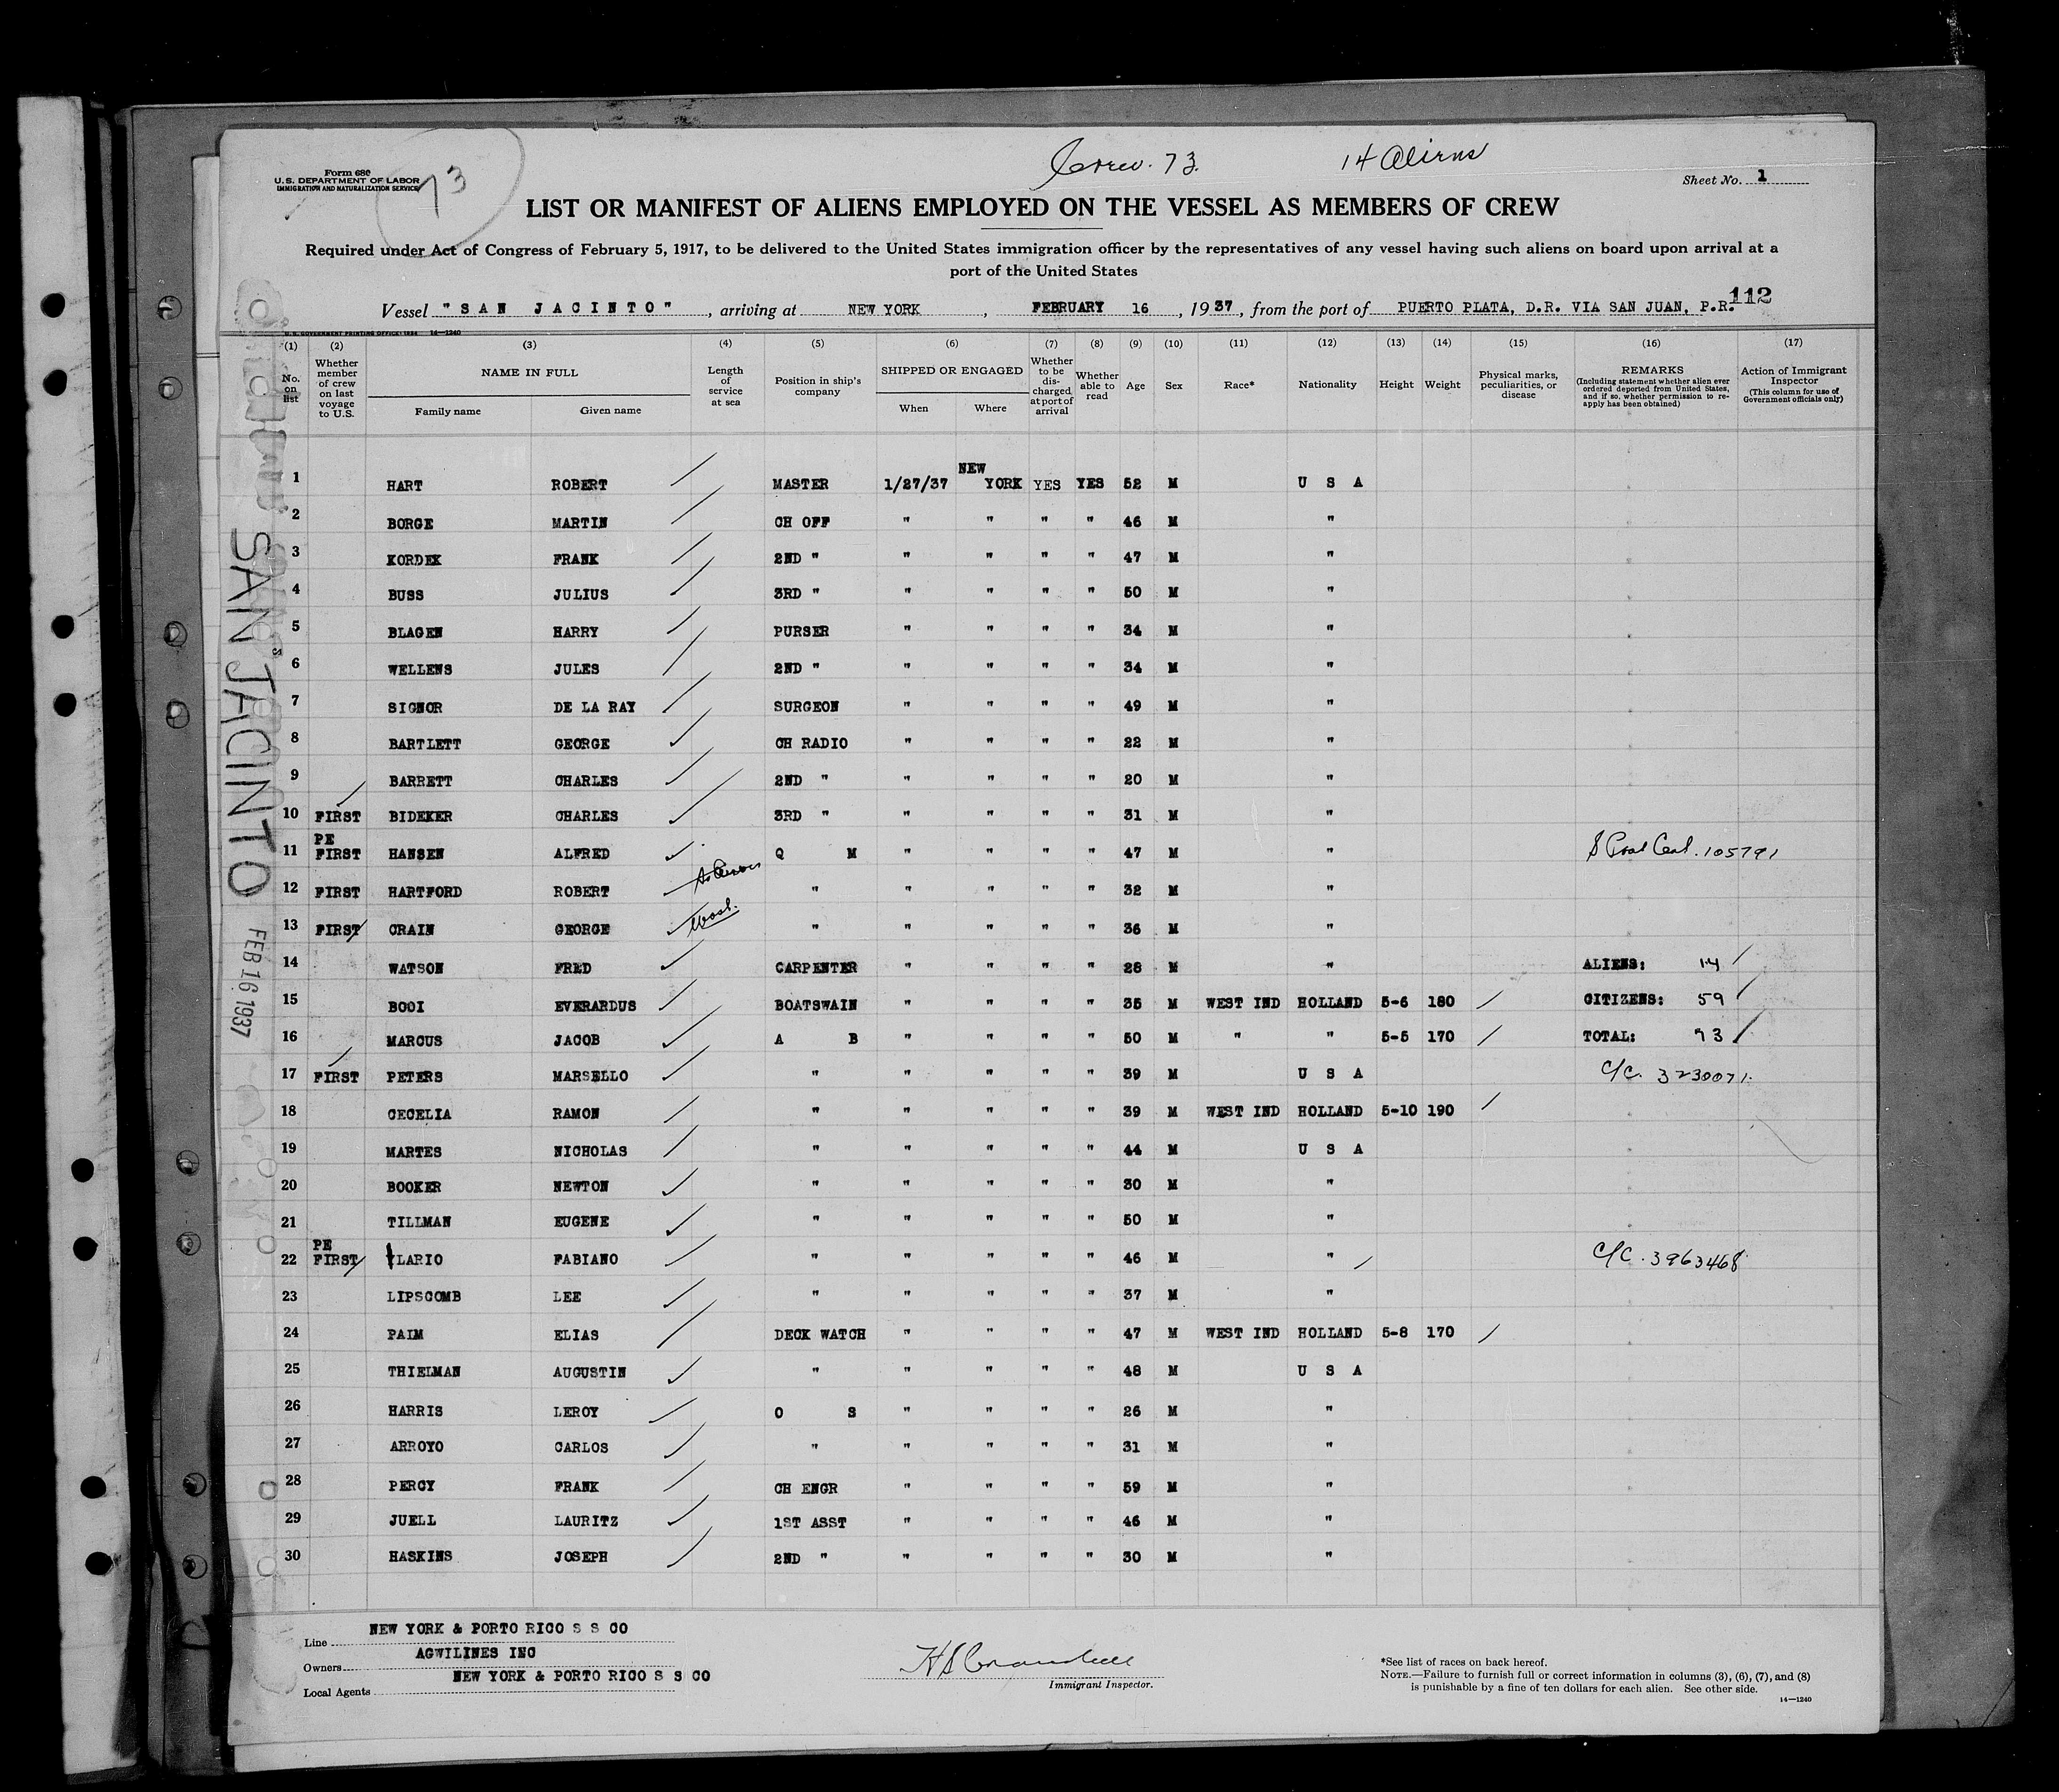 Crew. 73. 14 Aliens
73
Form 680
U.S. DEPARTMENT OF LABOR
IMMIGRATION AND NATURALIZATION SERVICE
Sheet No. 1
LIST OR MANIFEST OF ALIENS EMPLOYED ON THE VESSEL AS MEMBERS OF CREW
Required under Act of Congress of February 5, 1917, to be delivered to the United States immigration officer by the representatives of any vessel having such aliens on board upon arrival at a
port of the United States
112
Vessel "SAN JACINTO", arriving at NEW YORK, FEBRUARY 16, 1937, from the port of PUERTO PLATA, D.R. VIA SAN JUAN, P.R.
U.S. GOVERNMENT PRINTING OFFICE: 1934 14—1240
(1) (2) (3) (4) (5) (6) (7) (8) (9) (10) (11) (12) (13) (14) (15) (16) (17)
No. on list
Whether member of crew on last voyage to U.S.
NAME IN FULL
Family name Given name
Length of service at sea
Position in ship's company
SHIPPED OR ENGAGED
When Where
Whether to be discharged at port of arrival
Whether able to read
Age Sex Race* Nationality Height Weight
Physical marks, peculiarities, or disease
REMARKS
(Including statement whether alien ever ordered deported from United States, and if so, whether permission to re-apply has been obtained)
Action of Immigrant Inspector
(This column for use of Government officials only)
1 HART ROBERT MASTER 1/27/37 NEW YORK YES YES 52 M U S A
2 BORGE MARTIN CH OFF " " " " 46 M "
3 KORDEK FRANK 2ND " " " " " 47 M "
4 BUSS JULIUS 3RD " " " " " 50 M "
5 BLAGEN HARRY PURSER " " " " 34 M "
6 WELLENS JULES 2ND " " " " " 34 M "
7 SIGNOR DE LA RAY SURGEON " " " " 49 M "
8 BARTLETT GEORGE CH RADIO " " " " 22 M "
9 BARRETT CHARLES 2ND " " " " " 20 M "
10 FIRST BIDEKER CHARLES 3RD " " " " " 31 M "
11 PE FIRST HANSEN ALFRED Q M " " " " 47 M " 105791
12 FIRST HARTFORD ROBERT " " " " " 32 M "
13 FIRST CRAIN GEORGE " " " " " 36 M "
14 WATSON FRED CARPENTER " " " " 28 M " ALIENS: 14
15 BOOI EVERARDUS BOATSWAIN " " " " 35 M WEST IND HOLLAND 5-6 180 CITIZENS: 59
16 MARCUS JACOB A B " " " " 50 M " " 5-5 170 TOTAL: 73
17 FIRST PETERS MARSELLO " " " " " 39 M U S A C/C. 3230071.
18 CECELIA RAMON " " " " " 39 M WEST IND HOLLAND 5-10 190
19 MARTES NICHOLAS " " " " " 44 M U S A
20 BOOKER NEWTON " " " " " 30 M "
21 TILLMAN EUGENE " " " " " 50 M "
22 PE FIRST ILARIO FABIANO " " " " " 46 M " C/C. 3963468
23 LIPSCOMB LEE " " " " " 37 M "
24 PAIM ELIAS DECK WATCH " " " " 47 M WEST IND HOLLAND 5-8 170
25 THIELMAN AUGUSTIN " " " " " 48 M U S A
26 HARRIS LEROY O S " " " " 26 M "
27 ARROYO CARLOS " " " " " 31 M "
28 PERCY FRANK CH ENGR " " " " 59 M "
29 JUELL LAURITZ 1ST ASST " " " " 46 M "
30 HASKINS JOSEPH 2ND " " " " " 30 M "
SAN JACINTO FEB 16 1937
Line NEW YORK & PORTO RICO S S CO
Owners AGWILINES INC
Local Agents NEW YORK & PORTO RICO S S CO
Immigrant Inspector.
*See list of races on back hereof.
NOTE.—Failure to furnish full or correct information in columns (3), (6), (7), and (8)
is punishable by a fine of ten dollars for each alien. See other side.
14—1240